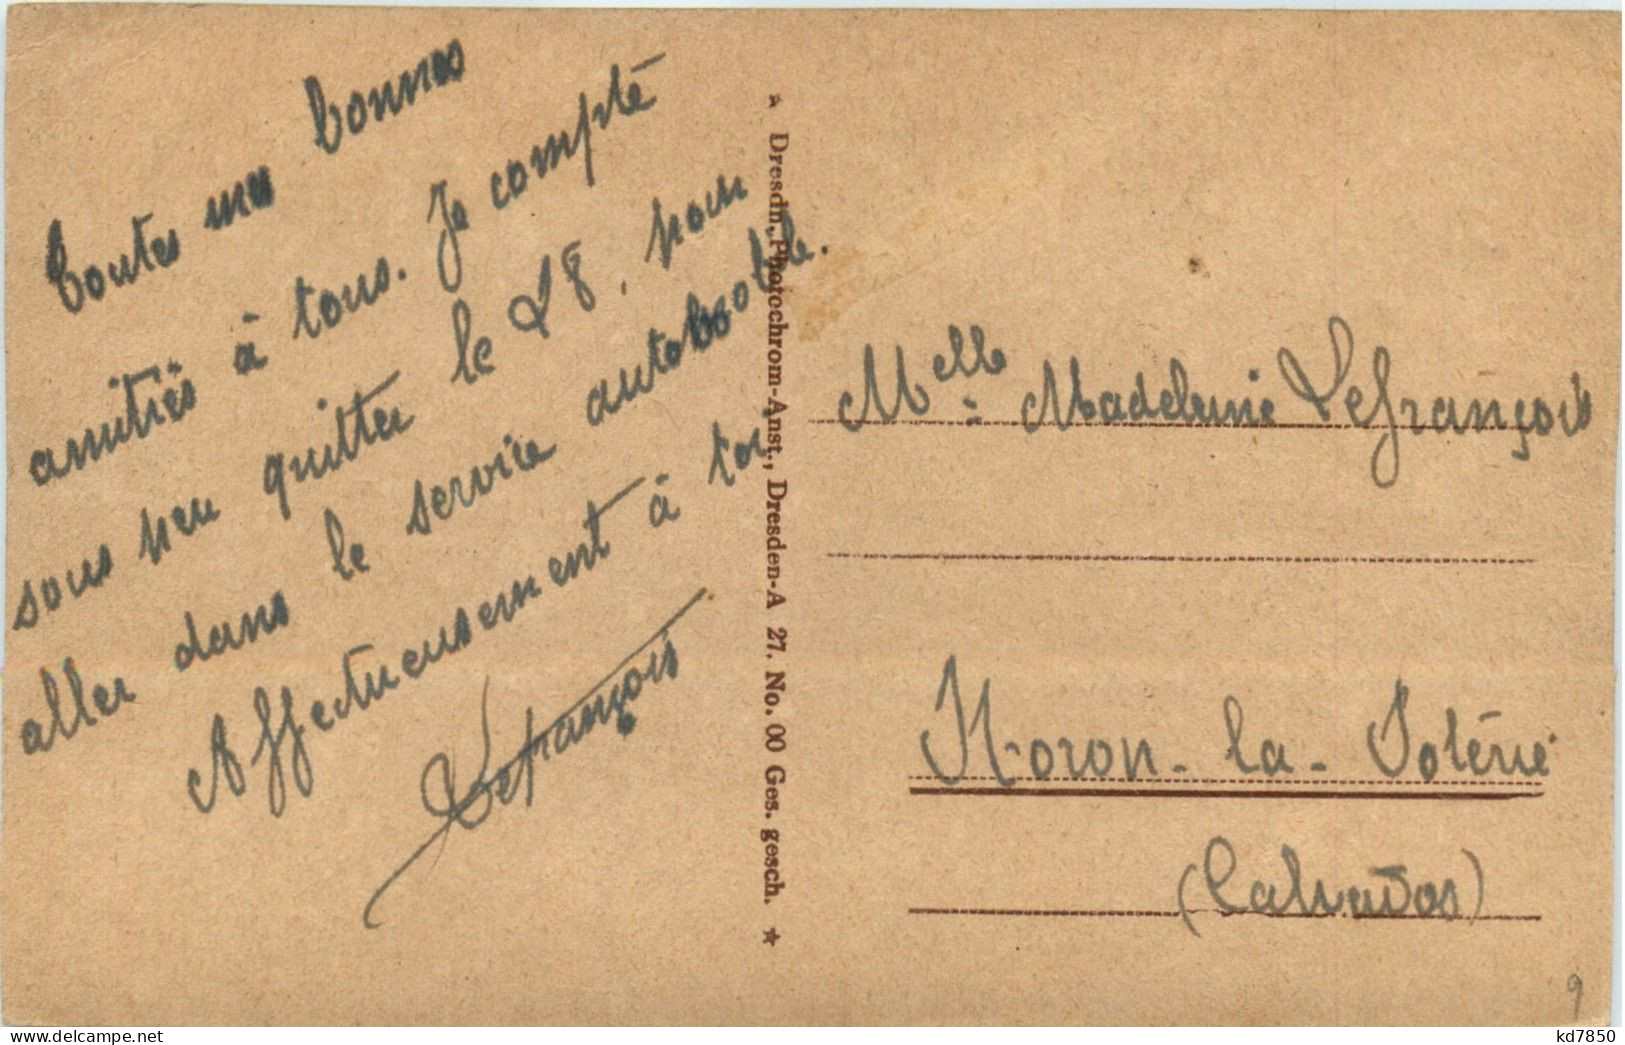 Toutes mes bonnes
amitiés à tous. Je compté
sous peu quitter le 28, pour
aller dans le service automobile.
Affectueusement à toi
Lefrançois
★ Dresdn. Photochrom-Anst., Dresden-A 27. No. 00 Ges. gesch. ★
Melle Madeleine Lefrançois
Noron-la-Poterie
(Calvados)
9
kd7850